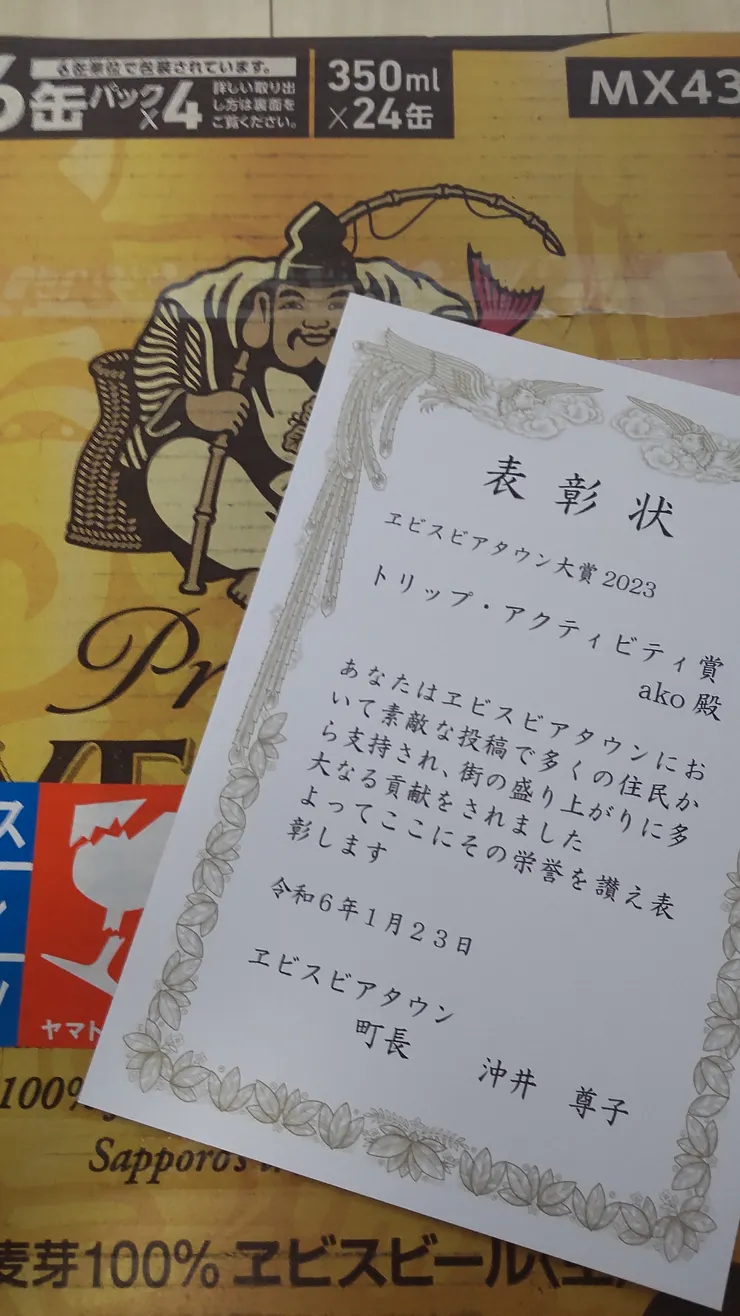 6缶パック×4
6缶単位で包装されています。
詳しい取り出
し方は裏面を
ご覧ください。
350ml
×24缶
MX43
表彰状
ヱビスビアタウン大賞2023
トリップ・アクティビティ賞
ako殿
あなたはヱビスビアタウンにお
いて素敵な投稿で多くの住民か
ら支持され、街の盛り上がりに多
大なる貢献をされました
よってここにその栄誉を讃え表
彰します
令和6年1月23日
ヱビスビアタウン
町長
沖井 尊子
Pr
ヤマト
100%
Sapporo's
麦芽100% ヱビスビール